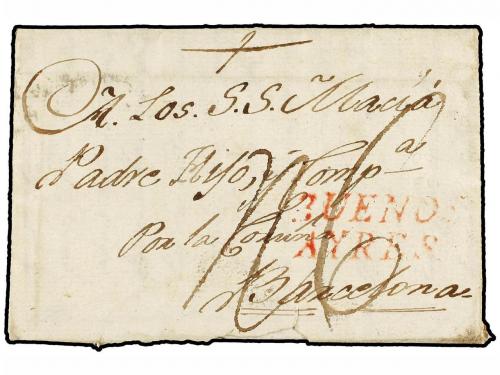 A. Los. S. S. Maciá
Padre Hijo, y Comp.a
Por la Coruña
BUENOS
AYRES
Barcelona